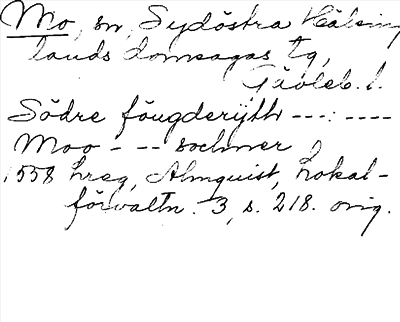 Mo, sn, Sydöstra Hälsing
lands domsagas tg,
Gävleb. l.
Södre fougderÿth ---:----
Moo - -- sochner
1558 hreg, Almquist, Lokal-
förvaltn. 3, s. 218. orig.